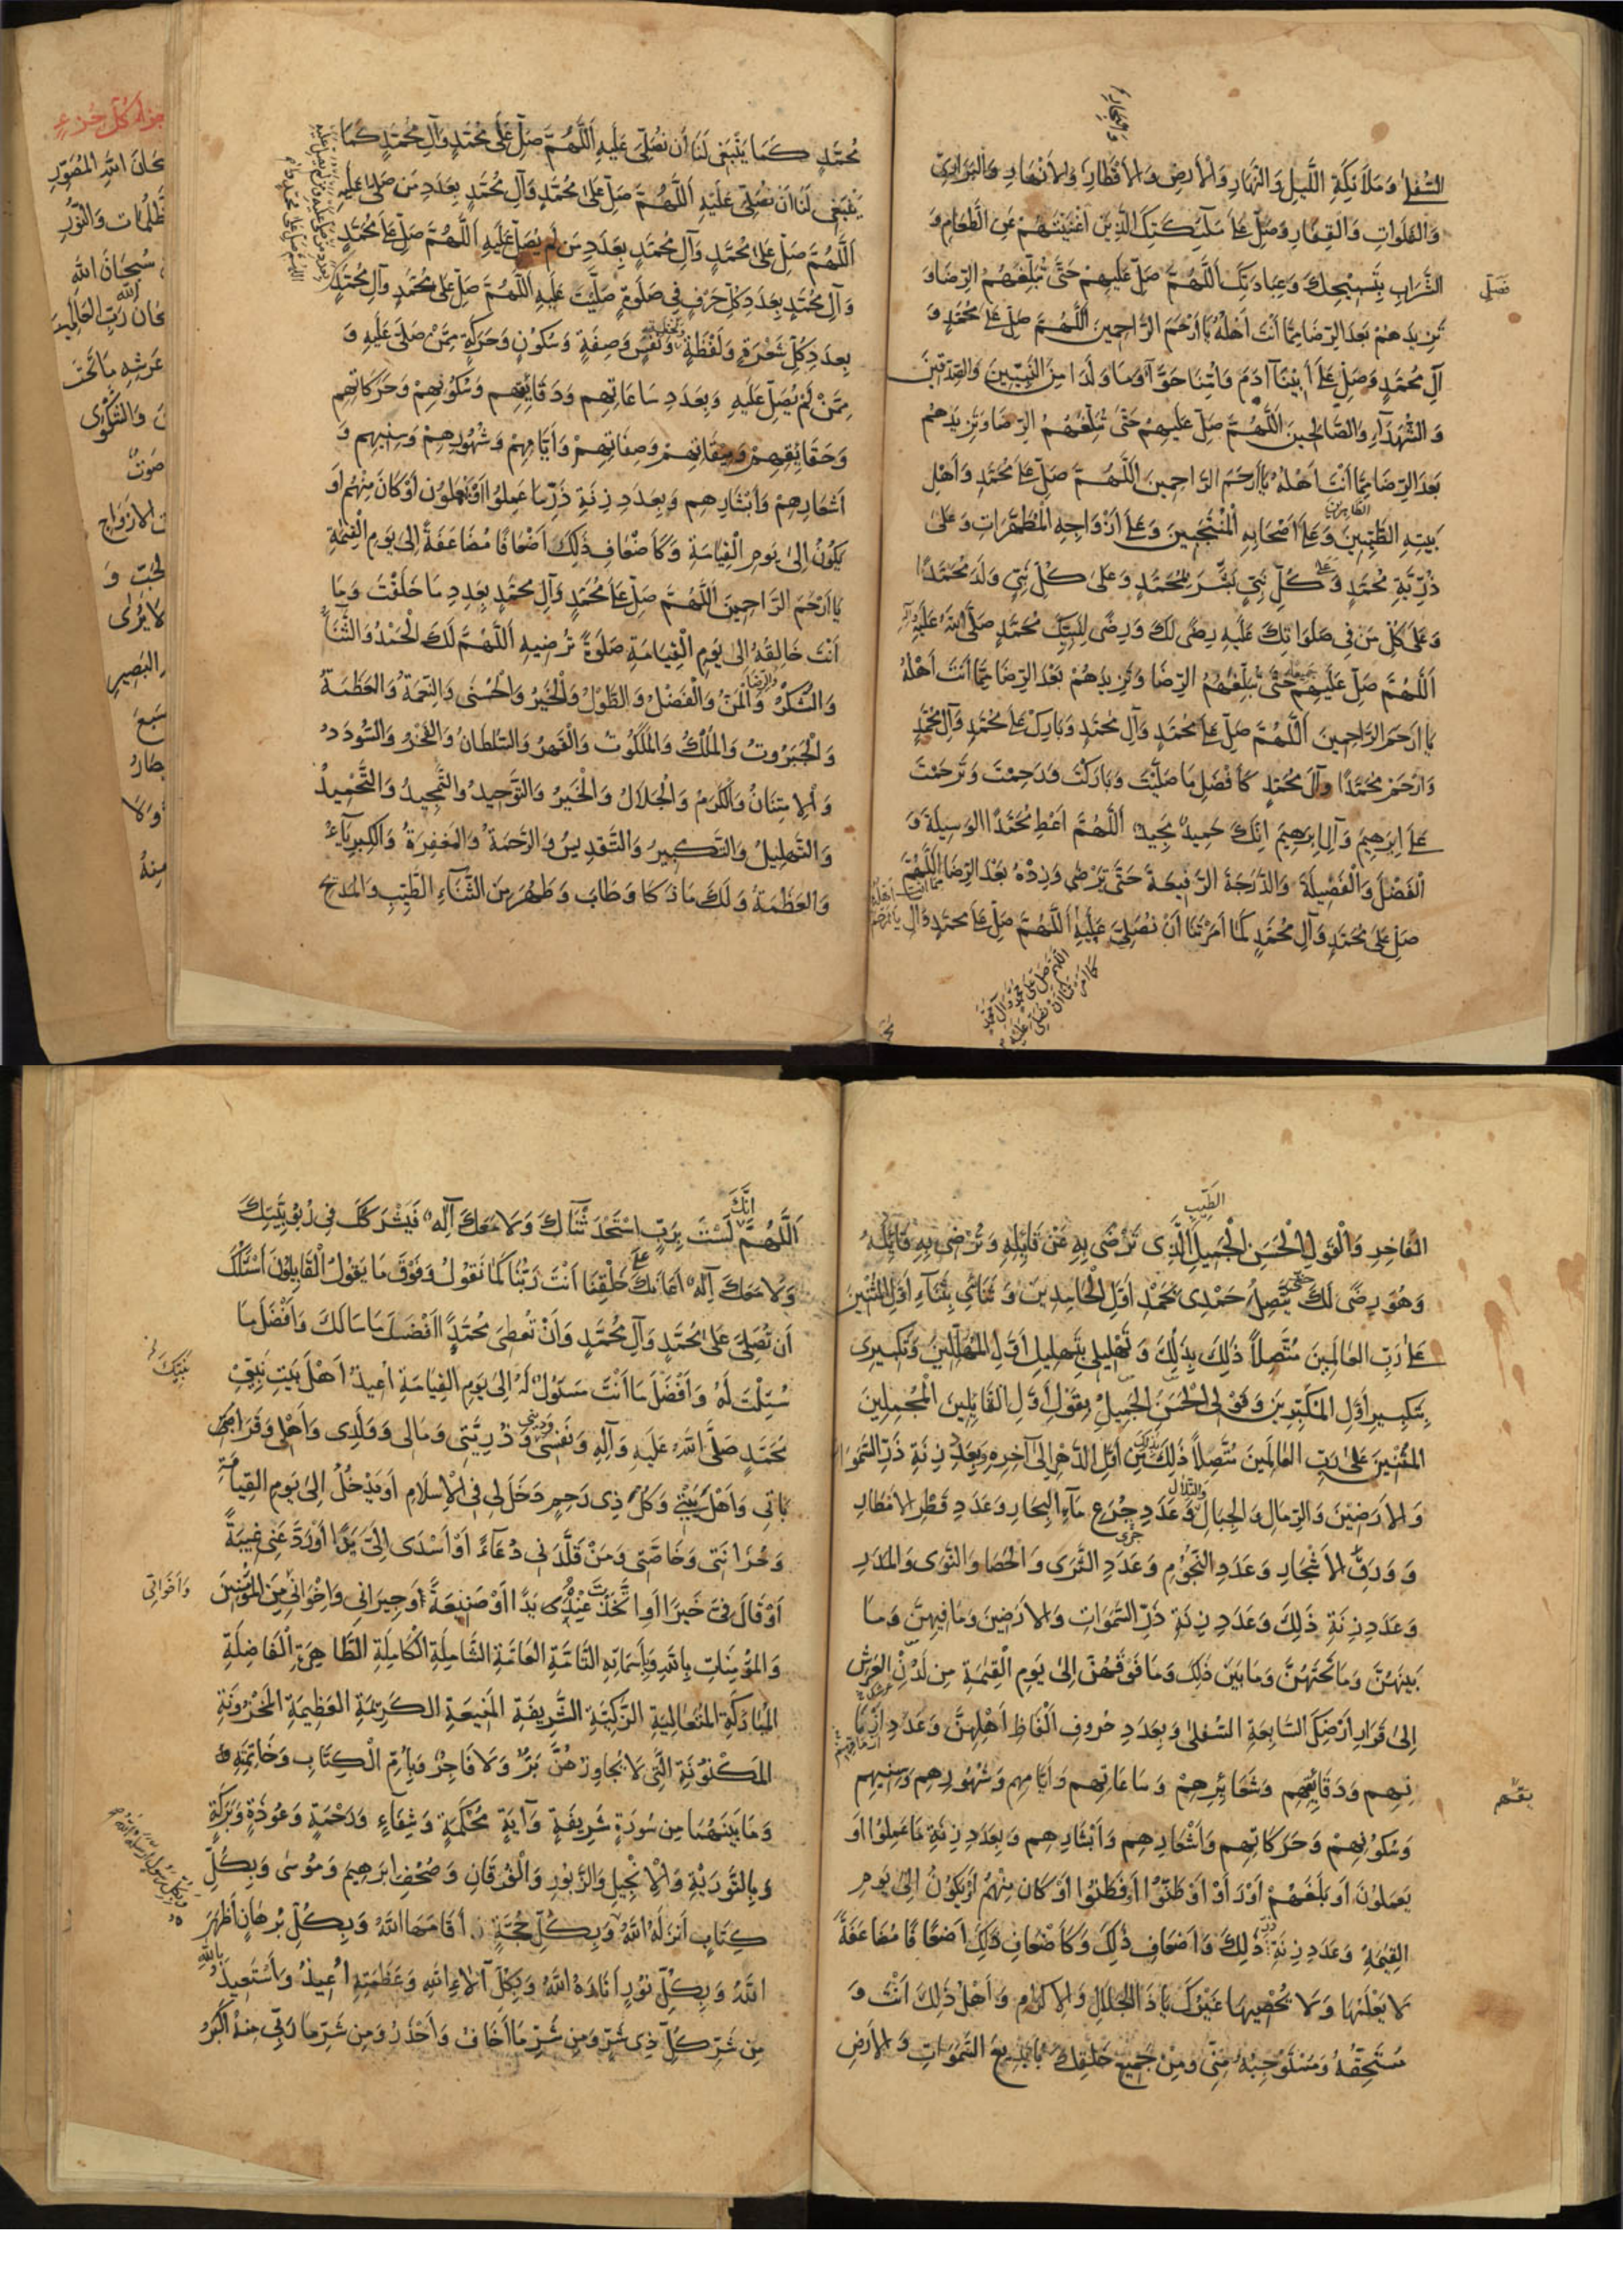 السُّفْلى وَمَلَائِكَةِ اللَّيلِ وَالنَّهارِ وَالْأَرضِ وَالأَقطَارِ وَالأَنْهَارِ وَالبَرَارِي
وَالفَلَوَاتِ وَالقِفَارِ وَصَلِّ عَلَى مَلَائِكَتِكَ الَّذِينَ أَغْنَيْتَهُمْ عَنِ الطَّعَامِ وَ
الشَّرَابِ بِتَسْبِيحِكَ وَعِبَادَتِكَ اَللَّهُمَّ صَلِّ عَلَيهِمْ حَتَّى تُبَلِّغَهُمُ الرِّضَا وَ
تَزِيدَهُمْ بَعدَ الرِّضَا مِمَّا أَنْتَ أَهْلُهُ يَا أَرْحَمَ الرَّاحِمِينَ اَللَّهُمَّ صَلِّ عَلَى مُحَمَّدٍ وَ
آلِ مُحَمَّدٍ وَصَلِّ عَلَى أَبِينَا آدَمَ وَاُمِّنَا حَوَّآءَ وَمَا وَلَدَا مِنَ النَّبِيِّينَ وَالصِّدِّيقِينَ
وَالشُّهَدَآءِ وَالصَّالِحِينَ اَللَّهُمَّ صَلِّ عَلَيهِمْ حَتَّى تُبَلِّغَهُمُ الرِّضَا وَتَزِيدَهُمْ
بَعدَ الرِّضَا مِمَّا أَنْتَ اَهْلُهُ يَا أَرحَمَ الرَّاحِمِينَ اَللَّهُمَّ صَلِّ عَلَى مُحَمَّدٍ وَاَهْلِ
بَيتِهِ الطَّيِّبِينَ الطَّاهِرِينَ وَعَلَى أَصْحَابِهِ الْمُنْتَجَبِينَ وَعَلَى أَزْوَاجِهِ الْمُطَهَّرَاتِ وَعَلى
ذُرِّيَّةِ مُحَمَّدٍ وَعَلَى كُلِّ نَبِيٍّ بَشَّرَ بِمُحَمَّدٍ وَعَلى كُلِّ نَبِيٍّ وَلَدَ مُحَمَّدًا
وَعَلَى كُلِّ مَن فِي صَلَوَاتِكَ عَلَيهِ رِضًى لَكَ وَرِضًى لِنَبِيِّكَ مُحَمَّدٍ صَلَّى اللهُ عَلَيهِ وَآلِهِ
اَللَّهُمَّ صَلِّ عَلَيهِمْ حَتَّى تُبَلِّغَهُمُ الرِّضَا وَتَزِيدَهُمْ بَعْدَ الرِّضَا مِمَّا أَنْتَ أَهْلُهُ
يَا أَرْحَمَ الرَّاحِمِينَ اَللَّهُمَّ صَلِّ عَلَى مُحَمَّدٍ وَآلِ مُحَمَّدٍ وَبَارِكْ عَلَى مُحَمَّدٍ وَآلِ مُحَمَّدٍ
وَارْحَمْ مُحَمَّدًا وَآلَ مُحَمَّدٍ كَأَفْضَلِ مَا صَلَّيْتَ وَبَارَكْتَ وَرَحِمْتَ وَتَرَحَّمْتَ
عَلَى اِبرَهِيمَ وَآلِ اِبرَهِيمَ اِنَّكَ حَمِيدٌ مَجِيدٌ اَللَّهُمَّ اَعْطِ مُحَمَّدًا الوَسِيلَةَ وَ
الْفَضْلَ وَالْفَضِيلَةَ وَالدَّرَجَةَ الرَّفِيعَةَ حَتَّى تَرْضى وَزِدْهُ بَعْدَ الرِّضَا اَللَّهُمَّ
صَلِّ عَلى مُحَمَّدٍ وَآلِ مُحَمَّدٍ كَمَا أَمَرْتَنَا أَنْ نُصَلِّيَ عَلَيهِ اَللَّهُمَّ صَلِّ عَلَى مُحَمَّدٍ وَآلِ
اللَّهُمَّ صَلِّ عَلَى مُحَمَّدٍ وَآلِ مُحَمَّدٍ
كَمَا أَمَرْتَنَا أَنْ نُصَلِّيَ عَلَيْهِ
مُحَمَّدٍ كَمَا يَنْبَغِي لَنَا أَن نُصَلِّيَ عَلَيهِ اَللَّهُمَّ صَلِّ عَلَى مُحَمَّدٍ وَآلِ مُحَمَّدٍ كَمَا
يَنْبَغِي لَنَا اَن نُصَلِّيَ عَلَيْهِ اَللَّهُمَّ صَلِّ عَلى مُحَمَّدٍ وَآلِ مُحَمَّدٍ بِعَدَدِ مَن صَلَّى عَلَيهِ
اَللَّهُمَّ صَلِّ عَلى مُحَمَّدٍ وَآلِ مُحَمَّدٍ بِعَدَدِ مَن لَمْ يُصَلِّ عَلَيهِ اَللَّهُمَّ صَلِّ عَلَى مُحَمَّدٍ
وَآلِ مُحَمَّدٍ بِعَدَدِ كُلِّ حَرْفٍ فِي صَلَوةٍ صَلَّيْتَ عَلَيهِ اَللَّهُمَّ صَلِّ عَلى مُحَمَّدٍ وَآلِ مُحَمَّدٍ
بِعَدَدِ كُلِّ شَعْرَةٍ وَلَفْظَةٍ وَنَفَسٍ وَصِفَةٍ وَسُكُونٍ وَحَرَكَةٍ مِمَّنْ صَلّى عَلَيهِ وَ
مِمَّنْ لَمْ يُصَلِّ عَلَيهِ وَبِعَدَدِ سَاعَاتِهِم وَدَقَائِقِهِم وَسُكُونِهِمْ وَحَرَكَاتِهِم
وَحَقَائِقِهِمْ وَمِيقَاتِهِمْ وَصِفَاتِهِمْ وَأَيَّامِهِمْ وَشُهُورِهِمْ وَسِنِيهِم وَ
اَشْعَارِهِمْ وَأَبْشَارِهِم وَبِعَدَدِ زِنَةِ ذَرِّ مَا عَمِلُوا اَوْ يَعْمَلُونَ اَوْ كَانَ مِنْهُم اَو
يَكُونُ اِلى يَومِ الْقِيَامَةِ وَكَأَضْعَافِ ذلِكَ اَضْعَافًا مُضَاعَفَةً اِلى يَومِ القِيمَةِ
يَا اَرْحَمَ الرَّاحِمِينَ اَللَّهُمَّ صَلِّ عَلَى مُحَمَّدٍ وَآلِ مُحَمَّدٍ بِعَدَدِ مَا خَلَقْتَ وَمَا
اَنْتَ خَالِقُهُ اِلى يَومِ الْقِيَامَةِ صَلَوةً تُرضِيهِ اَللَّهُمَّ لَكَ الْحَمْدُ وَالثَّنَآءُ
وَالشُّكْرُ وَالْمَنُّ وَالْفَضْلُ وَالطَّوْلُ وَالْخَيرُ وَالْحُسْنَى وَالنِّعْمَةُ وَالعَظَمَةُ
وَالْجَبَرُوتُ وَالمُلْكُ وَالمَلَكُوتُ وَالقَهرُ وَالسُّلْطَانُ وَالفَخْرُ وَالسُّودَدُ
وَالامتِنَانُ وَالكَرَمُ وَالْجَلَالُ وَالْخَيرُ وَالتَّوْحِيدُ وَالتَّمْجِيدُ وَالتَّحْمِيدُ
وَالتَّهلِيلُ وَالتَّكبِيرُ وَالتَّقدِيسُ وَالرَّحمَةُ وَالمَغفِرَةُ وَالكِبرِيآءُ
وَالعَظَمَةُ وَلَكَ مَا زَكَا وَطَابَ وَطَهُرَ مِنَ الثَّنَآءِ الطَّيِّبِ وَالمَدِيحِ
الفَاخِرِ وَالْقَولِ الْحَسَنِ الْجَمِيلِ الَّذِى تَرْضَى بِهِ عَنْ قَايِلِهِ وَتُرْضِى بِهِ قَائِلَهُ
وَهُوَ رِضًى لَكَ حَتَّى يَتَّصِلَ حَمْدِى بِحَمْدِ اَوَّلِ الْحَامِدِينَ وَثَنَائِي بِثَنَآءِ اَوَّلِ المُثْنِينَ
عَلَى رَبِّ العَالَمِينَ مُتَّصِلًا ذَلِكَ بِذَلِكَ وَتَهْلِيلِي بِتَهلِيلِ اَوَّلِ المُهَلِّلِينَ وَتَكبِيرِى
بِتَكبِيرِ اَوَّلِ المُكَبِّرِينَ وَقَوْلِى الْحَسَنَ الجَمِيلُ بِقَوْلِ اَوَّلِ القَايِلِينَ المُجْمِلِينَ
المُثْنِينَ عَلى رَبِّ العَالَمِينَ مُتَّصِلًا ذَلِكَ بِذَلِكَ مِن اَوَّلِ الدَّهْرِ اِلى آخِرِهِ وَبِعَدَدِ زِنَةِ ذَرِّ السَّمَوَاتِ
وَالاَرَضِينَ وَالرِّمَالِ وَالتِّلَالِ وَالجِبَالِ وَعَدَدِ جُرَعِ مَآءِ البِحَارِ وَعَدَدِ قَطْرِ الاَمْطَارِ
وَوَرَقِ الاَشْجَارِ وَعَدَدِ النُّجُومِ وَعَدَدِ الثَّرَى وَالحَصَا وَالنَّوَى وَالمَدَرِ
وَعَدَدِ زِنَةِ ذَلِكَ وَعَدَدِ زِنَةِ ذَرِّ السَّمَوَاتِ وَالاَرَضِينَ وَمَا فِيهِنَّ وَمَا
بَينَهُنَّ وَمَا تَحْتَهُنَّ وَمَا بَينَ ذَلِكَ وَمَا فَوقَهُنَّ اِلى يَومِ الْقِيمَةِ مِن لَدُنِ العَرشِ
اِلى قَرَارِ اَرْضِكَ السَّابِعَةِ السُّفلى وَبِعَدَدِ حُرُوفِ اَلْفَاظِ اَهْلِهِنَّ وَعَدَدِ اَزْمَا
نِهِم وَدَقَائِقِهِم وَشَعَائِرِهِمْ وَسَاعَاتِهِم وَاَيَّامِهِم وَشُهُورِهِم وَسِنِيهِم
وَسُكُونِهِمْ وَحَرَكَاتِهِم وَاَشْعَارِهِم وَاَبْشَارِهِم وَبِعَدَدِ زِنَةِ مَا عَمِلُوا اَو
يَعمَلُونَ اَو بَلَغَهُمْ اَوْ رَاَوْا اَوْ ظَنُّوا اَو فَطِنُوا اَو كَانَ مِنْهُم اَو يَكُونُ اِلى يَومِ
القِيمَةِ وَعَدَدِ زِنَةِ ذَرِّ ذَلِكَ وَاَضْعَافِ ذلِكَ وَكَاَضْعَافِ ذلِكَ اَضعَافًا مُضَاعَفَةً
لا يَعْلَمُهَا وَلا يُحْصِيهَا غَيْرُكَ يَا ذَا الجَلَالِ وَالاكرَامِ وَاَهْلُ ذَلِكَ اَنْتَ وَ
مُستَحِقُّهُ وَمُستَوجِبُهُ مِنِّي وَمِنْ جَمِيعِ خَلْقِكَ يَا بَدِيعَ السَّمَوَاتِ وَالاَرضِ
اَللَّهُمَّ اِنَّكَ لَسْتَ بِرَبٍّ اسْتَحْدَثْنَاكَ وَلَا مَعَكَ اِلهٌ فَيَشْرَكَكَ فِي رُبُوبِيَّتِكَ
وَلَا مَعَكَ اِلهٌ اَعَانَكَ عَلَى خَلْقِنَا اَنْتَ رَبُّنَا كَمَا نَقُولُ وَفَوْقَ مَا يَقُولُ القَايِلُونَ اَسْئَلُكَ
اَن تُصَلِّىَ عَلى مُحَمَّدٍ وَآلِ مُحَمَّدٍ وَاَنْ تُعطِىَ مُحَمَّدًا اَفْضَلَ مَا سَاَلَكَ وَاَفْضَلَ مَا
سُئِلْتَ لَهُ وَاَفْضَلَ مَا اَنْتَ مَسئُولٌ لَهُ اِلى يَومِ القِيَامَةِ اُعِيذُ اَهْلَ بَيتِ نَبِيِّي
مُحَمَّدٍ صَلَّى اللهُ عَلَيهِ وَآلِهِ وَنَفْسِى وَدِينِي وَذُرِّيَّتِى وَمَالِى وَوَلَدِى وَاَهلِى وَقَرَابَ
اتِي وَاَهْلَ بَيْتِي وَكُلَّ ذِى رَحِمٍ دَخَلَ لِى فِى الاِسلَامِ اَو يَدْخُلُ اِلى يَومِ القِيامَةِ
وَحُزَانَتِى وَخَاصَّتِى وَمَنْ قَلَّدَنِي دُعَآءً اَوْ اَسْدَى اِلَيَّ يَدًا اَوْ رَدَّ عَنِّى غِيبَةً
اَوْ قَالَ فِىَّ خَيرًا اَوِ اتَّخَذْتُ عِنْدَهُ يَدًا اَوْ صَنِيعَةً وَجِيرَانِي وَاِخْوَانِي مِنَ المُؤْمِنِينَ
وَاَخَوَاتِي
وَالمُؤمِنَاتِ بِاللهِ وَبِاَسمَائِهِ التَّامَّةِ العَامَّةِ الشَّامِلَةِ الكَامِلَةِ الطَّاهِرَةِ الفَاضِلَةِ
المُبَارَكَةِ المُتَعَالِيَةِ الزَّكِيَّةِ الشَّرِيفَةِ المَنِيعَةِ الكَرِيمَةِ العَظِيمَةِ المَخْزُونَةِ
المَكنُونَةِ الَّتِى لا يُجَاوِزُهُنَّ بَرٌّ وَلَا فَاجِرٌ وَبِاُمِّ الكِتَابِ وَخَاتِمَتِهِ
وَمَا بَينَهُمَا مِن سُورَةٍ شَرِيفَةٍ وَآيَةٍ مُحْكَمَةٍ وَشِفَاءٍ وَرَحْمَةٍ وَعُوذَةٍ وَبَرَكَةٍ
وَبِالتَّورَيةِ وَالْاِنْجِيلِ وَالزَّبُورِ وَالْفُرقَانِ وَصُحُفِ اِبرَهِيمَ وَمُوسى وَبِكُلِّ
كِتَابٍ اَنزَلَهُ اللهُ وَبِكُلِّ حُجَّةٍ اَقَامَهَا اللهُ وَبِكُلِّ بُرهَانٍ اَظهَرَهُ
اللهُ وَبِكُلِّ نُورٍ اَنَارَهُ اللهُ وَبِكُلِّ آلَاءِ اللهِ وَعَظَمَتِهِ اُعِيذُ وَاَسْتَعِيذُ بِاللهِ
مِن شَرِّ كُلِّ ذِى شَرٍّ وَمِن شَرِّ مَا اَخَافُ وَاَحْذَرُ وَمِن شَرِّ مَا رَبِّى مِنهُ اَكبَرُ